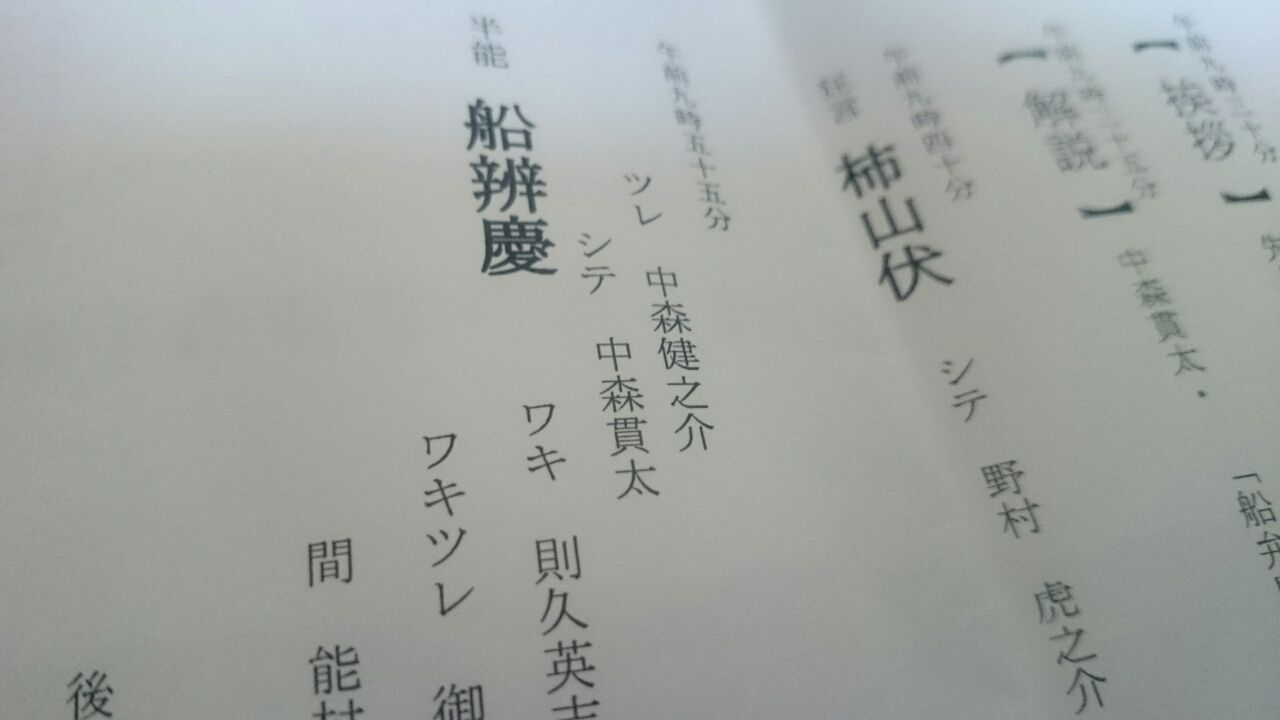 午前九時三十分
【挨拶】
午前九時三十五分
【解説】 中森貫太
「船弁
午前九時四十分
狂言 柿山伏 シテ 野村 虎之介
午前九時五十五分
ツレ 中森健之介
シテ 中森貫太
半能 船辨慶
ワキ 則久英志
ワキツレ 御
間 能村
後